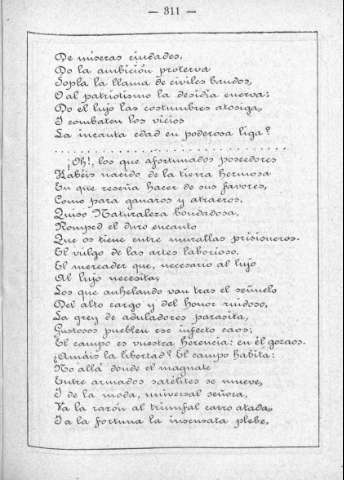 — 311 —
De míseras ciudades,
Do la ambición proterva
Sopla la llama de civiles bandos,
O al patriotismo la desidia enerva;
Do el lujo las costumbres atosiga,
I combaten los vicios
La incauta edad en poderosa liga?
¡Oh!, los que afortunados poseedores
Habéis nacido de la tierra hermosa
En que reseña hacer de sus favores,
Como para ganaros y atraeros,
Quiso Naturaleza bondadosa,
Romped el duro encanto
Que os tiene entre murallas prisioneros.
El vulgo de las artes laborioso,
El mercader que, necesario al lujo
Al lujo necesita,
Los que anhelando van tras el señuelo
Del alto cargo y del honor ruidoso,
La grey de aduladores parásita,
Gustosos pueblen ese infecto caos;
El campo es vuestra herencia: en él gozaos.
¿Amáis la libertad? El campo habita:
No allá donde el magnate
Entre armados satélites se mueve,
I de la moda, universal señora,
Va la razón al triunfal carro atada,
I a la fortuna la insensata plebe,